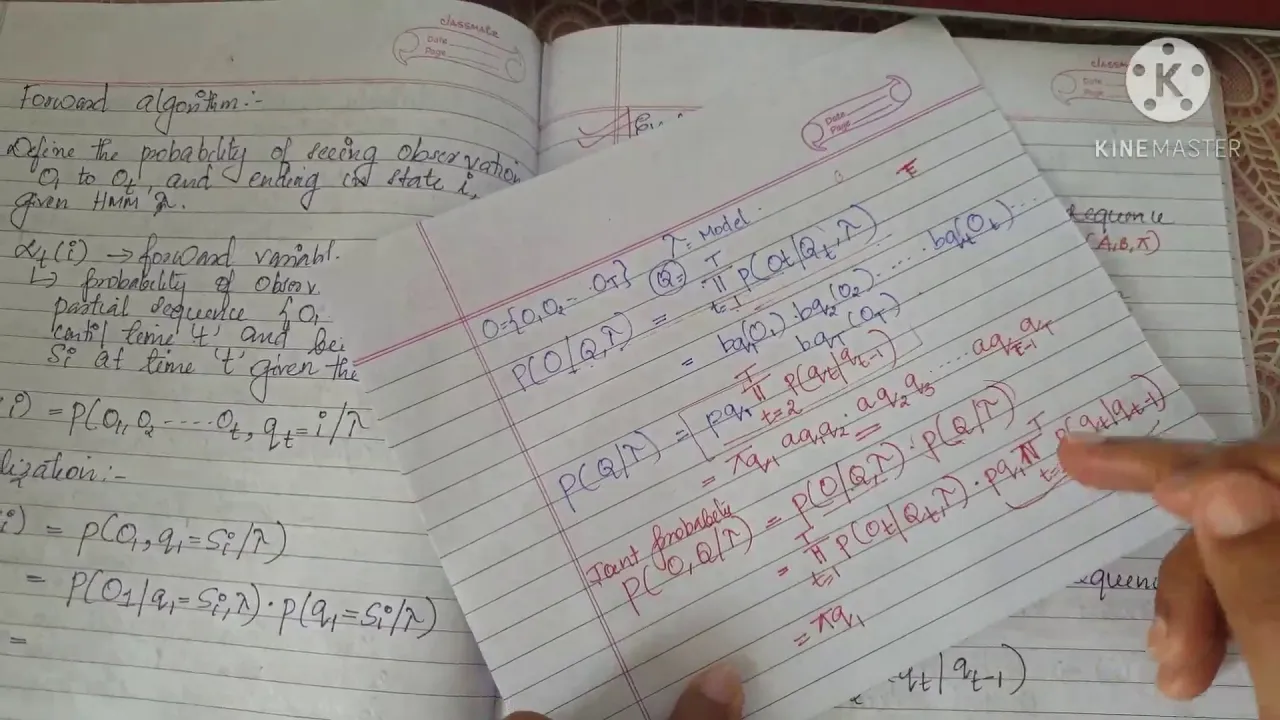 classmate
Date
Page
Forward algorithm:-
Define the probability of seeing observation
O1 to Ot, and ending in state i,
given HMM λ.
αt(i) → forward variabl.
↳ probability of observ
partial sequence {O1
until time 't' and be
Si at time 't' given the
i) = P(O1, O2 ---- Ot, qt = i/λ
lization:-
i) = P(O1, q1 = Si/λ)
= P(O1/q1 = Si, λ) · P(q1 = Si/λ)
=
Date
Page
λ = Model.
O = {O1 O2 = OT}
P(O|Q,λ) = T π t=1 P(Ot|Qt,λ)
= bq1(O1) · bq2(O2) ..... bqt(Ot)...
bqT(OT)
P(Q|λ) = pq1 T π t=2 P(qt|qt-1)
= πq1 aq1q2 · aq2q3 ..... aqT-1 qT
Joint probabilty
P(O,Q|λ) = P(O|Q,λ) · P(Q|λ)
= T π t=1 P(Ot|Qt,λ) · pq1 T π t= P(qt|qt-1)
= πq1
classm
K
KINEMASTER
sequence
(A,B,π)
equenc
qt|qt-1)